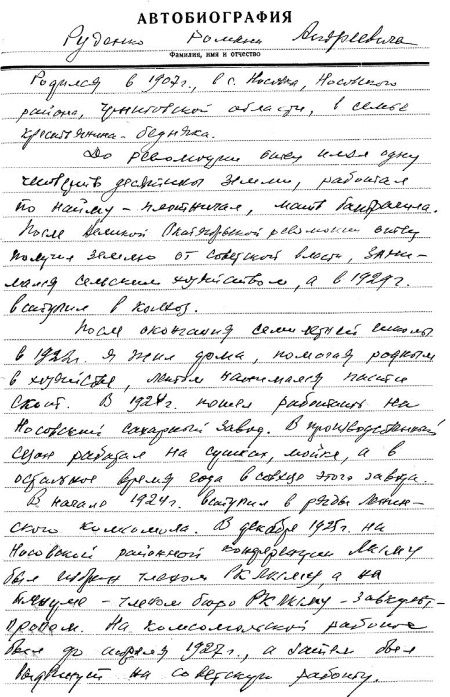 АВТОБИОГРАФИЯ
Руденко Романа Андреевича
Фамилия, имя и отчество
Родился в 1907г., в с. Носовка, Носовского
района, Черниговской области, в семье
крестьянина-бедняка.
До революции отец имел одну
четверть десятины земли, работал
по найму – плотничал, мать батрачила.
После Великой Октябрьской революции отец
получил землю от советской власти, зани-
мался сельским хозяйством, а в 1929г.
вступил в колхоз.
После окончания семилетней школы
в 1922г. я жил дома, помогая родным
в хозяйстве, летом нанимался пасти
скот. В 1924г. пошел работать на
Носовский сахарный завод. В производственный
сезон работал на сушках, мойке, а в
остальное время года в совхозе этого завода.
В начале 1924г. вступил в ряды Ленин-
ского комсомола. В декабре 1925г. на
Носовской районной конференции ЛКСМУ
был избран членом РК ЛКСМУ а на
пленуме – членом бюро РК ЛКСМУ – завкульт-
пропом. На комсомольской работе
был до апреля 1927г., а затем был
выдвинут на советскую работу.